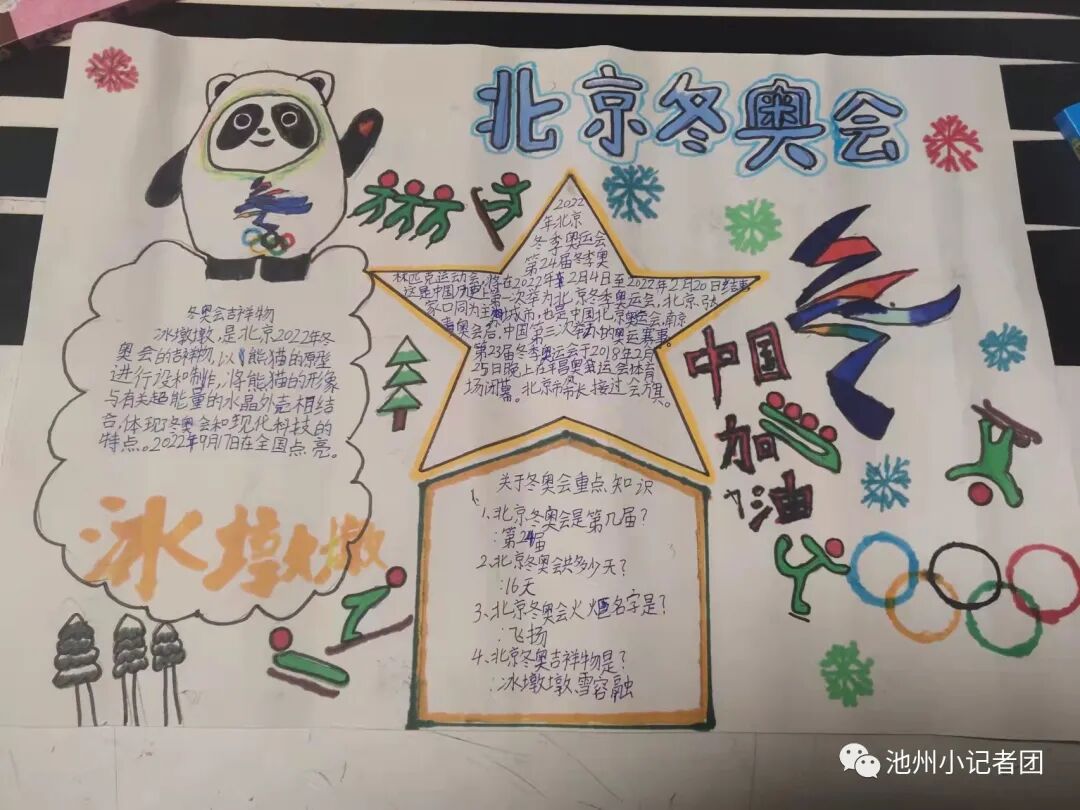 北京冬奥会
冬奥会吉祥物
冰墩墩,是北京2022年冬
奥会的吉祥物,以熊猫的原型
进行设和制作,将熊猫的形象
与有关超能量的水晶外壳相结
合,体现了冬奥会和现化科技的
特点。2022年9月17日在全国点亮。
冰墩墩
2022
年北京
冬季奥运会
第24届冬季奥
林匹克运动会,将在2022年2月4日至2022年2月20日结束
这是中国历史上第一次举为北京冬季奥运会,北京、张
家口同为主城市,也是中国北京奥运会,南京
青奥会后,中国第三次举办的奥运赛事。
第23届冬季奥运会于2018年2月
25日晚上在平昌奥运会体育
场闭幕。北京市长接过会旗。
中国
加油
关于冬奥会重点知识
1、北京冬奥会是第几届?
:第24届
2、北京冬奥会共多少天?
:16天
3、北京冬奥会火炬名字是?
:飞扬
4、北京冬奥吉祥物是?
:冰墩墩,雪容融
池州小记者团